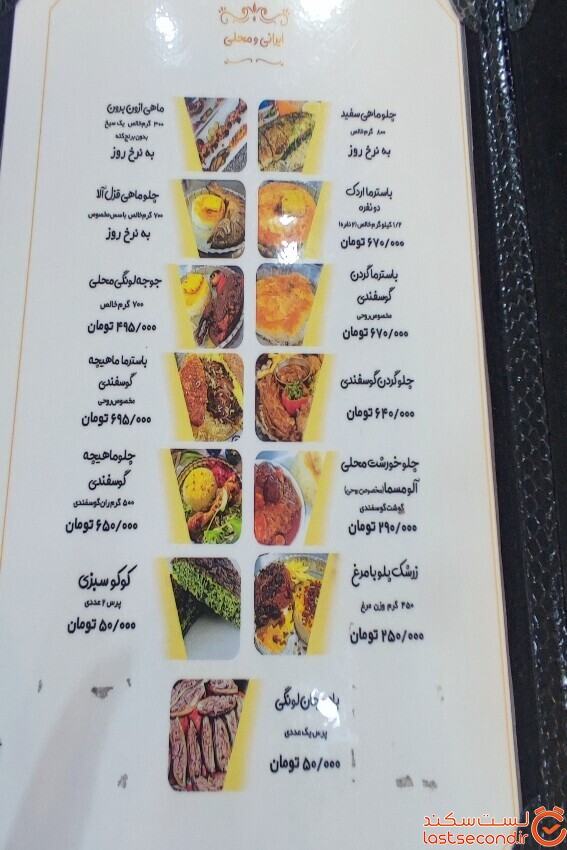 ایرانی و محلی
چلو ماهی سفید
۸۰۰ گرم خالص
به نرخ روز
ماهی اوزون برون
۳۰۰ گرم خالص یک سیخ
بدون برنج کته
به نرخ روز
باسترما اردک
دو نفره
۱/۲ کیلوگرم خالص (۲ نفره)
۶۷۰/۰۰۰ تومان
چلو ماهی قزل آلا
۷۰۰ گرم خالص با سس مخصوص
به نرخ روز
باسترما گردن
گوسفندی
مخصوص روحی
۶۷۰/۰۰۰ تومان
جوجه لونگی محلی
۷۰۰ گرم خالص
۴۹۵/۰۰۰ تومان
چلو گردن گوسفندی
۶۴۰/۰۰۰ تومان
باسترما ماهیچه
گوسفندی
مخصوص روحی
۶۹۵/۰۰۰ تومان
چلو خورشت محلی
آلو مسما (مخصوص روحی)
گوشت گوسفندی
۲۹۰/۰۰۰ تومان
چلو ماهیچه
گوسفندی
۵۰۰ گرم ران گوسفندی
۶۵۰/۰۰۰ تومان
زرشک پلو با مرغ
۴۵۰ گرم وزن مرغ
۲۵۰/۰۰۰ تومان
کوکو سبزی
پرس ۲ عددی
۵۰/۰۰۰ تومان
بادمجان لونگی
پرس یک عددی
۵۰/۰۰۰ تومان
لست سکند
lastsecond.ir